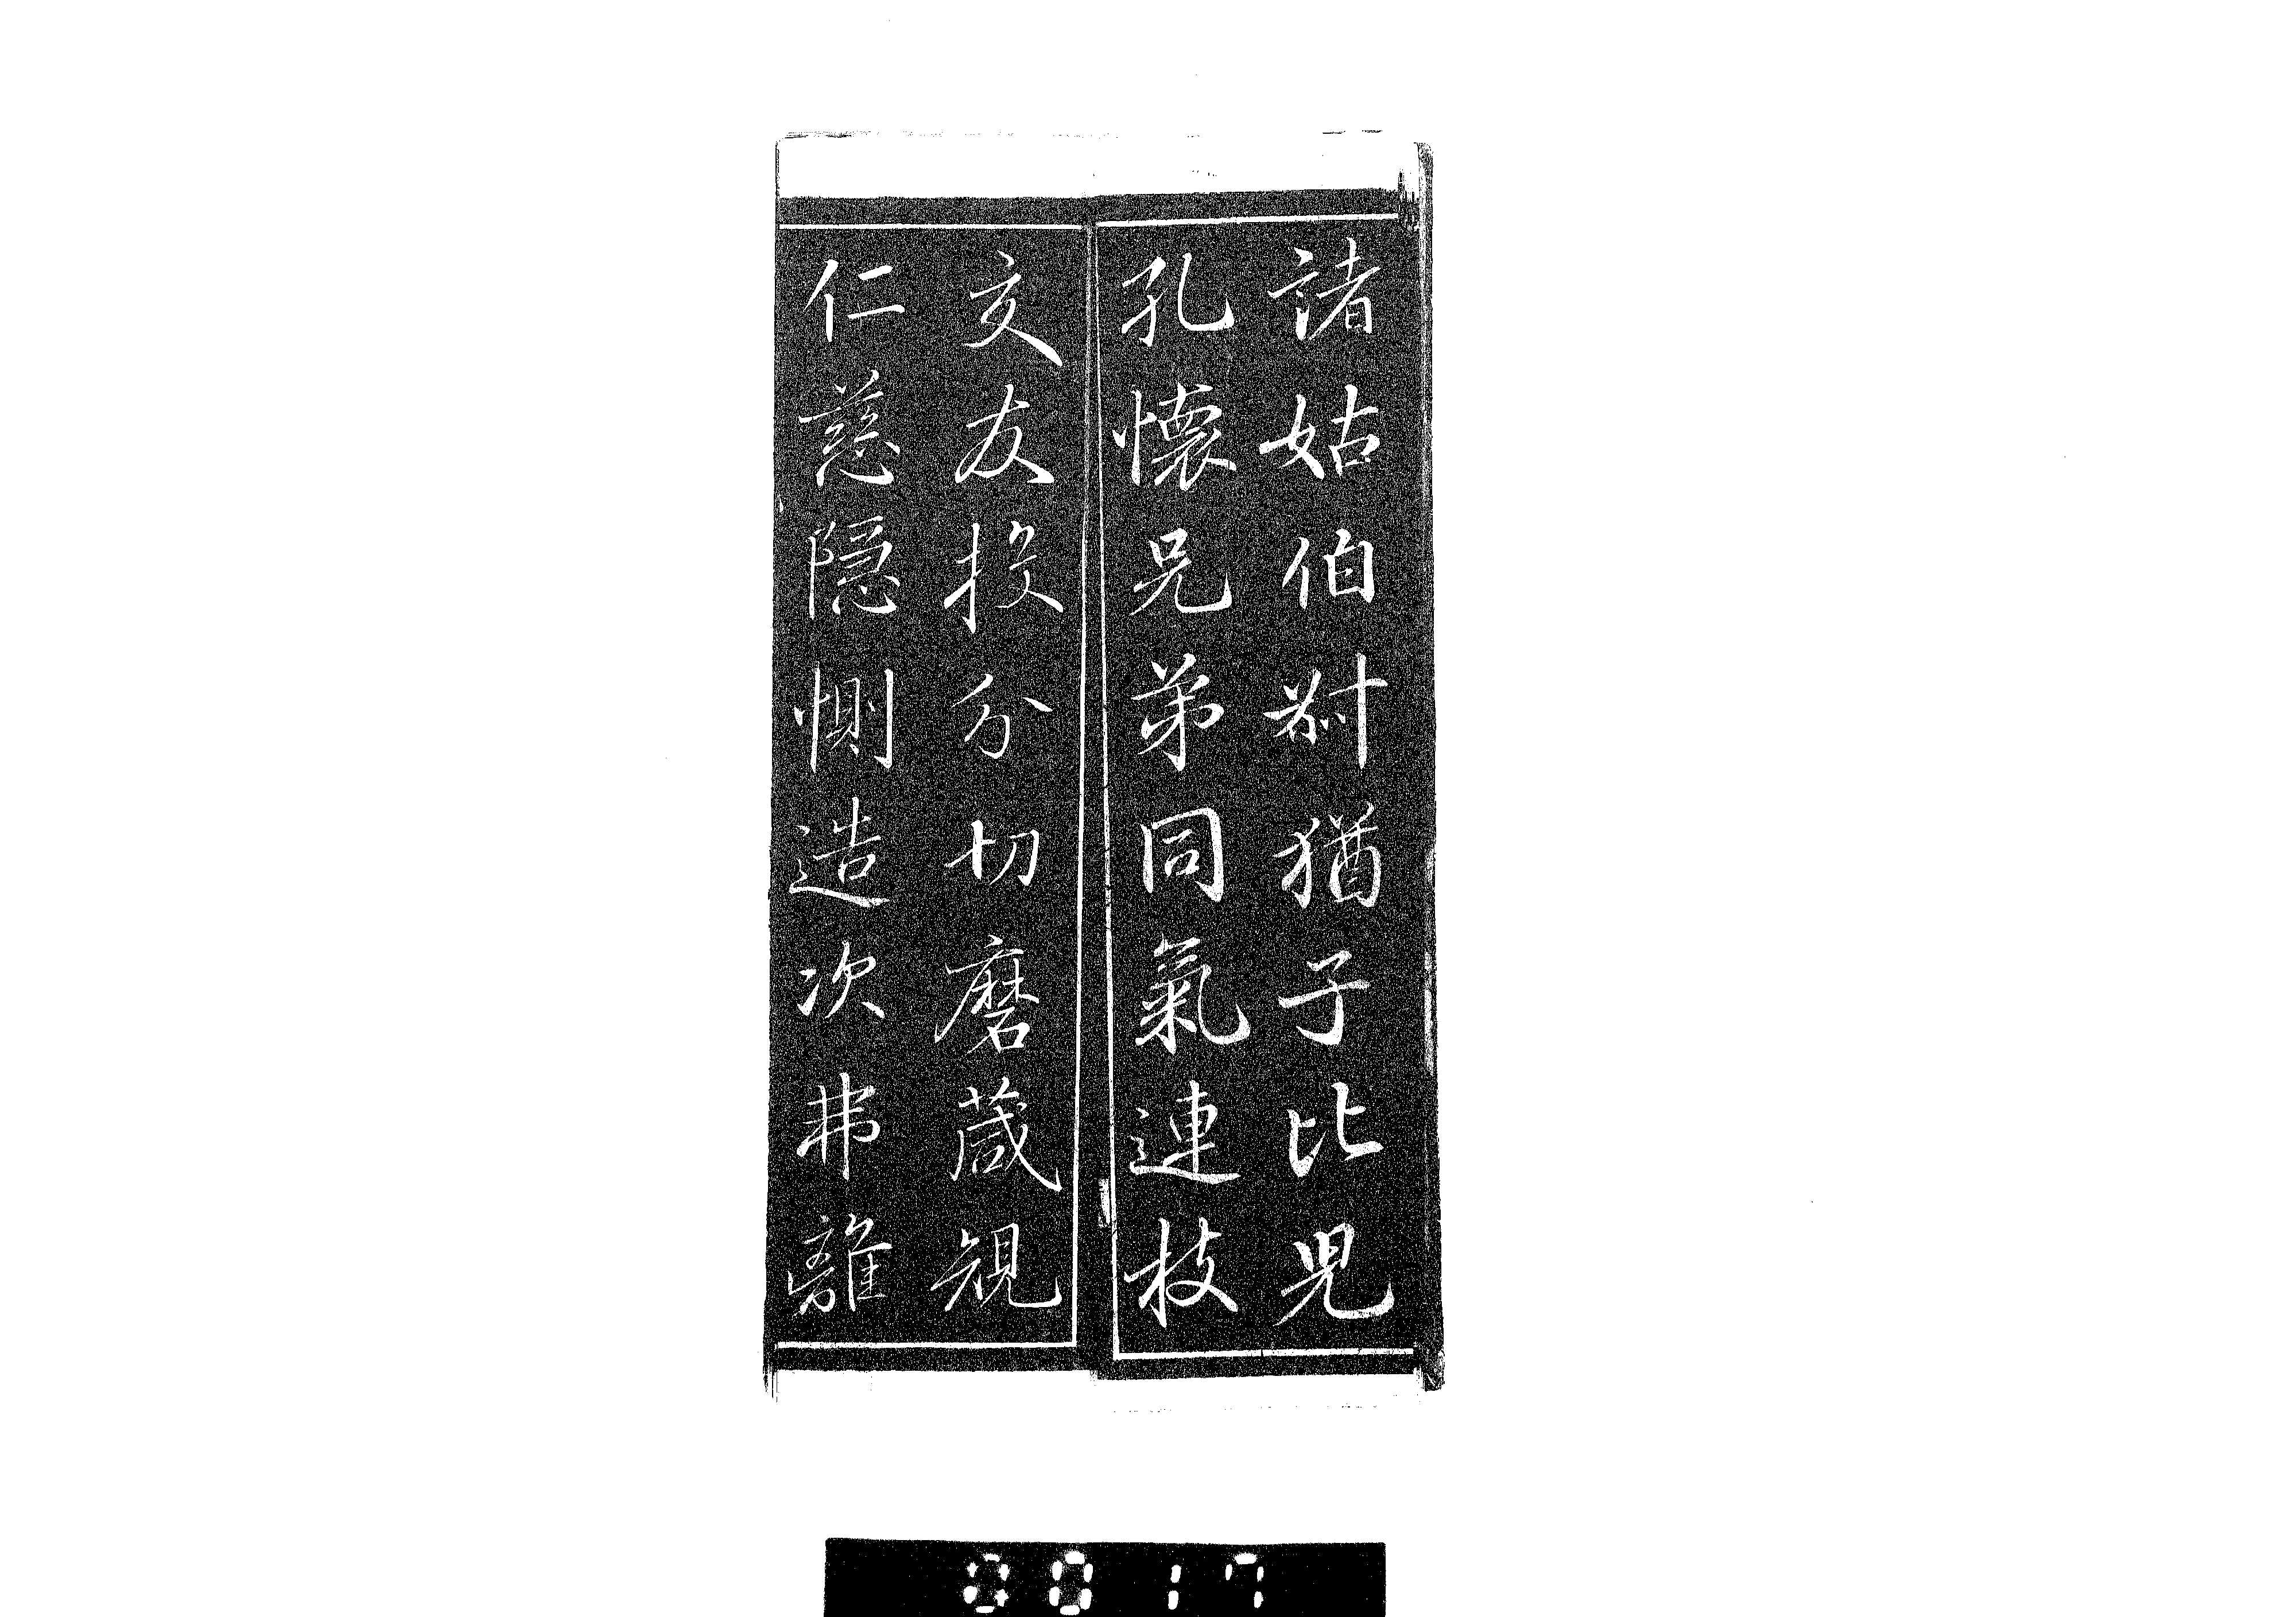 諸姑伯叔猶子比兒
孔懷兄弟同氣連枝
交友投分切磨葴規
仁慈隱惻造次弗離
0017